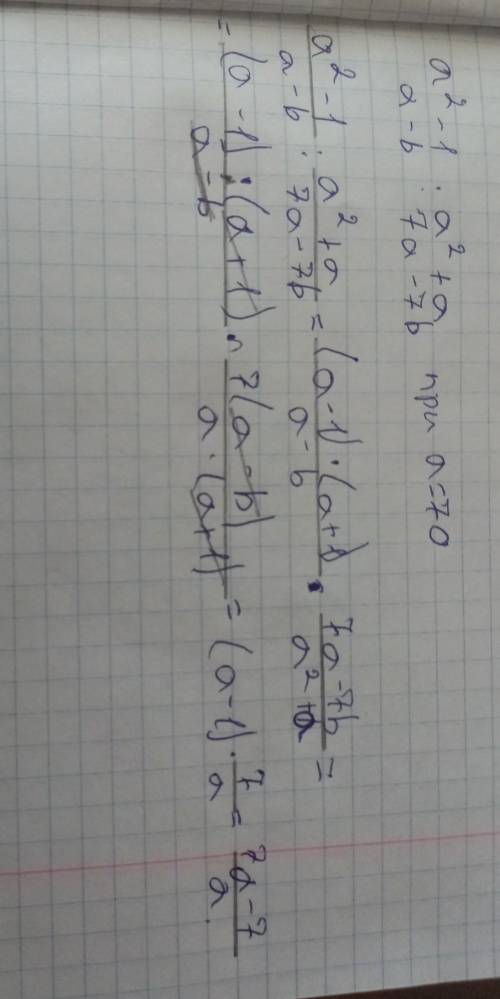 a² - 1 / a - b : a² + a / 7a - 7b при a = 70
a² - 1 / a - b : a² + a / 7a - 7b = (a - 1) · (a + 1) / a - b · 7a - 7b / a² + a =
= (a - 1) · (a + 1) / a - b · 7(a - b) / a · (a + 1) = (a - 1) · 7 / a = 7a - 7 / a